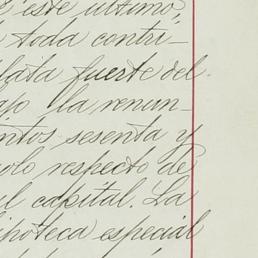 este último,
toda contri-
plata fuerte del
la renun-
sesenta y
solo respecto de
el capital. La
hipoteca especial